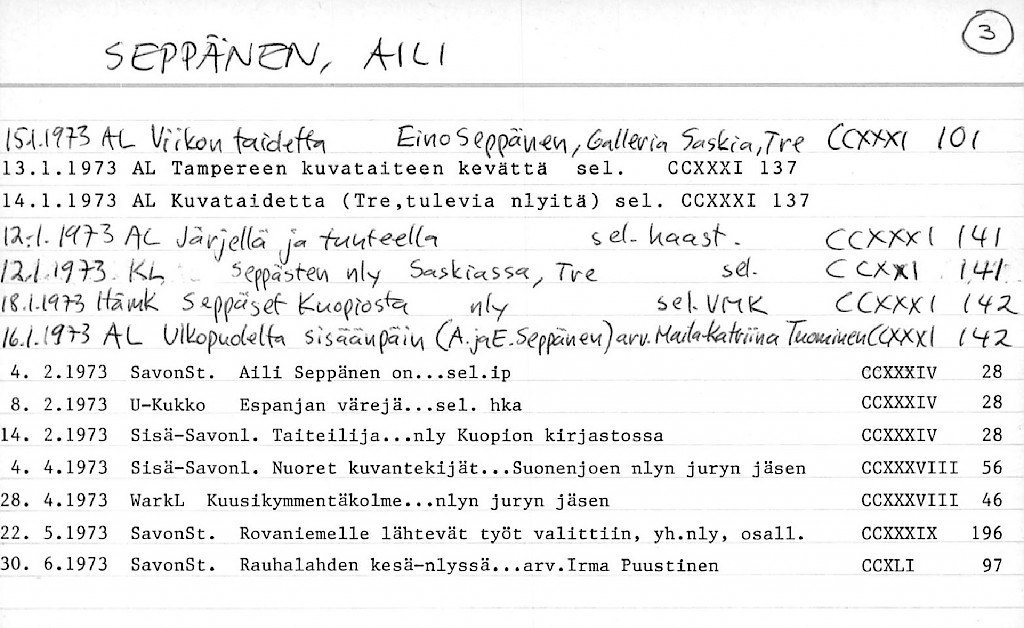 3
SEPPÄNEN, AILI
15.1.1973 AL Viikon taidetta Eino Seppänen, Galleria Saskia, Tre CCXXXI 101
13.1.1973 AL Tampereen kuvataiteen kevättä sel. CCXXXI 137
14.1.1973 AL Kuvataidetta (Tre,tulevia nlyitä) sel. CCXXXI 137
12.1.1973 AL Järjellä ja tunteella sel. haast. CCXXXI 141
12.1.1973 KL Seppästen nly Saskiassa, Tre sel. CCXXXI 141
18.1.1973 HämK Seppäset Kuopiosta nly sel. VMK CCXXXI 142
16.1.1973 AL Ulkopuolelta sisäänpäin (A. ja E. Seppänen) arv. Maila-Katriina Tuominen CCXXXI 142
4. 2.1973 SavonSt. Aili Seppänen on...sel.ip CCXXXIV 28
8. 2.1973 U-Kukko Espanjan värejä...sel. hka CCXXXIV 28
14. 2.1973 Sisä-Savonl. Taiteilija...nly Kuopion kirjastossa CCXXXIV 28
4. 4.1973 Sisä-Savonl. Nuoret kuvantekijät...Suonenjoen nlyn juryn jäsen CCXXXVIII 56
28. 4.1973 WarkL Kuusikymmentäkolme...nlyn juryn jäsen CCXXXVIII 46
22. 5.1973 SavonSt. Rovaniemelle lähtevät työt valittiin, yh.nly, osall. CCXXXIX 196
30. 6.1973 SavonSt. Rauhalahden kesä-nlyssä...arv.Irma Puustinen CCXLI 97